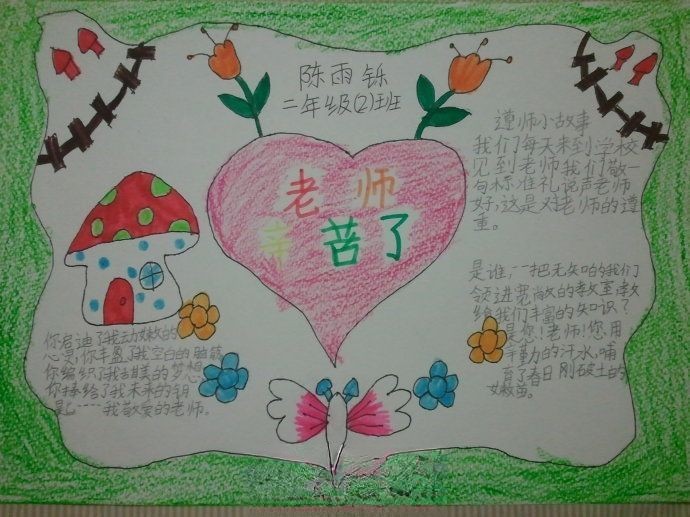 陈雨铄
二年级(2)班
老师
辛苦了
遵师小故事
我们每天来到学校
见到老师我们敬一
句标准礼说声老师
好,这是对老师的遵
重。
是谁,一一把无知的我们
领进宽敞的教室,教
给我们丰富的知识?
是您!老师!您用
辛勤的汗水,哺
育了春日刚破土的
嫩苗。
你启迪了我幼嫩的
心灵,你丰盈了我空白的脑筋
你编织了我甜美的梦想
你捧给了我未来的钥
匙----我敬爱的老师。